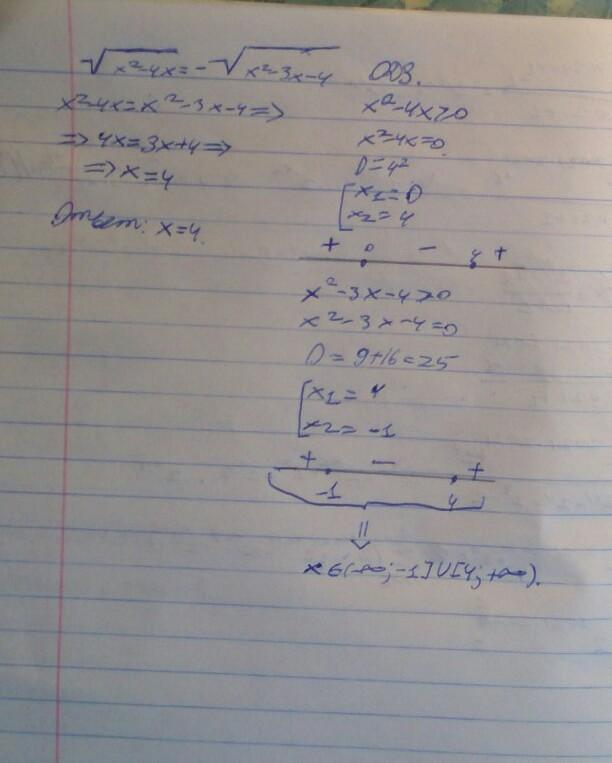 √x²-4x = -√x²-3x-4
x²-4x=x²-3x-4=>
=> 4x=3x+4=>
=> x=4
Ответ: x=4.
ОДЗ.
x²-4x≥0
x²-4x=0
D=4²
[x1=0
x2=4
+ 0 - 4 +
x²-3x-4≥0
x²-3x-4=0
D=9+16=25
[x1=4
x2=-1
+ - +
-1 4
⇓
x∈(-∞;-1]∪[4;+∞).